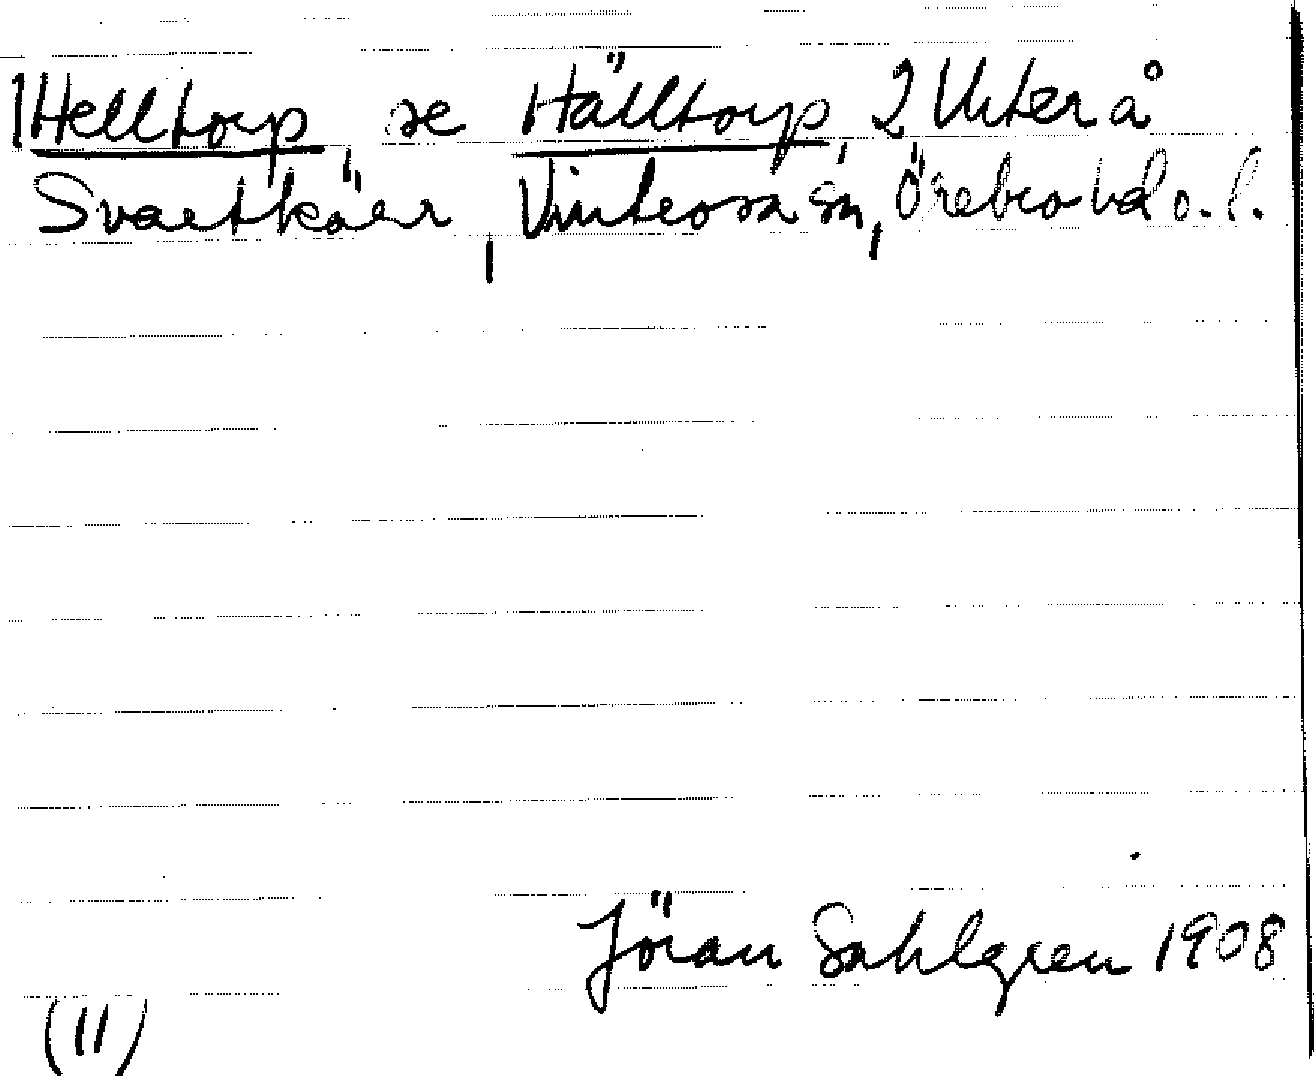 1 Helltorp, se Hälltorp, 2 Uterå
Svartkärr, Vinterosa sn, Örebro hd o. l.
Jöran Sahlgren 1908
(11)